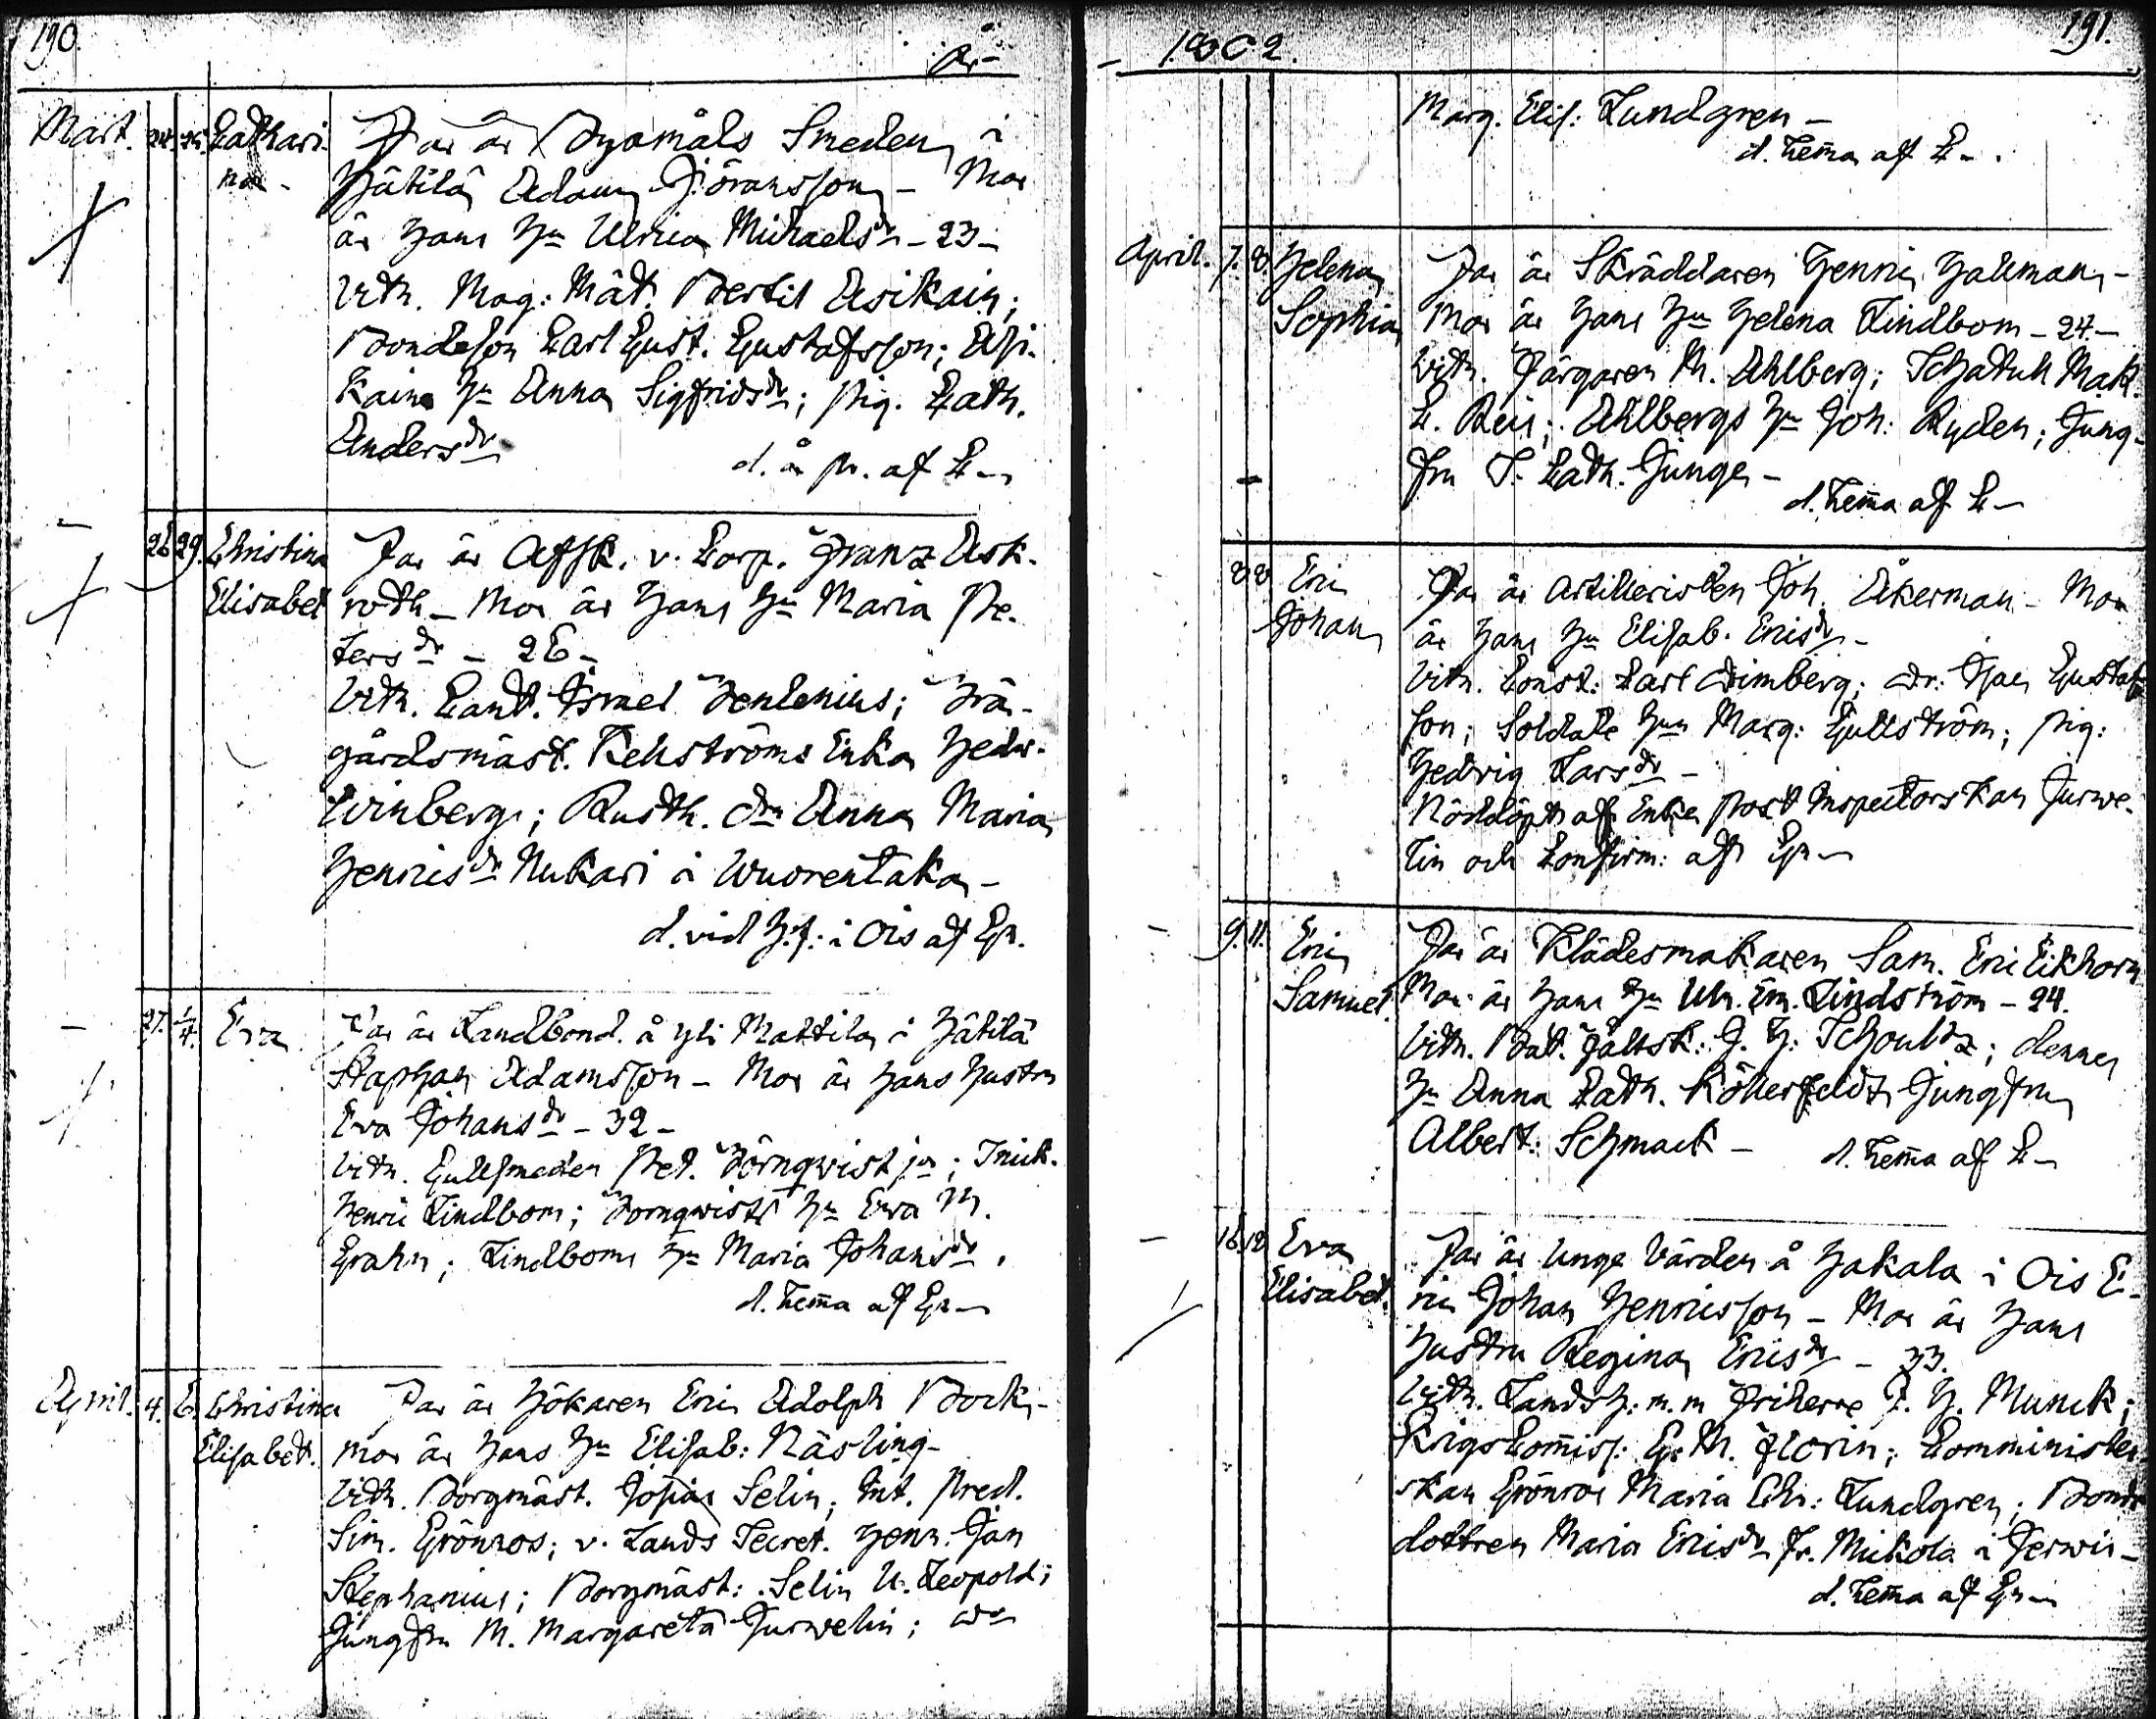 190.
År
Mart. 24. 25. Cathari- Far är Byamåls Smeden i
na - Hätilä Adam Jöransson - Mor
är hans Hu Ulrica Michaelsdr - 23 -
Vitn. Mag: Mät. Bertil Asikain;
Bondeson Carl Gust. Gustafsson; Asi-
kains Hu Anna Sigfridsdr; pig. Cath.
Andersdr
d. å pr. af C -
26 29. Christina Far är Affsk. v. Corp. Franz Ask-
Elisabet roth - Mor är hans Hu Maria Pe-
tersdr - 26 -
Vitn. Cand. Israel Tenlenius; Trä-
gårdsmäst. Rehströms Enka Hedv.
Winberg; Rusth. dr Anna Maria
Henricsdr Nukari i Wuorentaka -
d. vid H.f: i Ois af Gr.
27. 1/4. Eva Far är Landbond. å Yli Mattila i Hätilä
Staphan Adamsson - Mor är hans hustru
Eva Johansdr - 32 -
Vitn. Gullsmeden Pet. Törnqwist jr; Snick.
Henric Lindbom; Törnqwists Hu Eva M.
Grahn; Lindboms Hu Maria Johansdr.
d. hema af Gr -
April. 4. 6. Christina Far är Hökaren Eric Adolph Bock -
Elisabet. mor är hans Hu Elisab: Näsling -
Vitn. Borgmäst. Josias Selin; Int. Pred.
Sim. Grönros; v. Lands Secret. Henr. Jan
Stephanius; Borgmäst: Selin U. Leopold;
Jungfru M. Margareta Jurvelin; dr
- 1802. 191.
Marg. Elis: Lundgren -
d. hema af C - .
April. 7. 8. Helena Far är Skräddaren Henric Hallman -
Sophia Mor är hans Hu Helena Lindbom - 24 -
Vitn. Färgaren M. Ahlberg; Schatull Mak.
C. Reis; Ahlbergs Hu Joh: Ryden; Jung-
fru S. Cath. Junge -
d. hema af C -
8 8 Eric Far är Artilleristen Joh. Åkerman - Mor
Johan är hans Hu Elisab. Ericsdr -
Vitn. Const: Carl Dimberg; dr: Isac Gustaf
son; Soldate Hun Marg: Gullström; pig:
Hedvig Larsdr -
Nöddöpt af Enke Post Inspectorskan Jurve-
lin och Confirm: af Gr -
9. 11. Eric Far är Klädesmakaren Sam. Eric Eikhorn
Samuel. Mor är hans Hu Ulr. Em. Lindström - 24.
Vitn. Bat. Fältsk: J. H: Schoultz; dennes
Hu Anna Cath. Röllerfeldt Jungfru
Albert: Schmack - d. hema af C -
16 18 Eva Far är unge Värden å Hakala i Ois E-
Elisabet. ric Johan Henricsson - Mor är hans
hustru Regina Ericsdr - 33.
Vitn. Landsh: m.m Friherre J. H. Munck;
Krigs Comiss: G. M. Florin; Comminister
skan Grönros Maria Chr: Lundgren; Bonde
dottren Maria Ericsdr fr. Mickola i Jerwis -
d. hema af Gr -